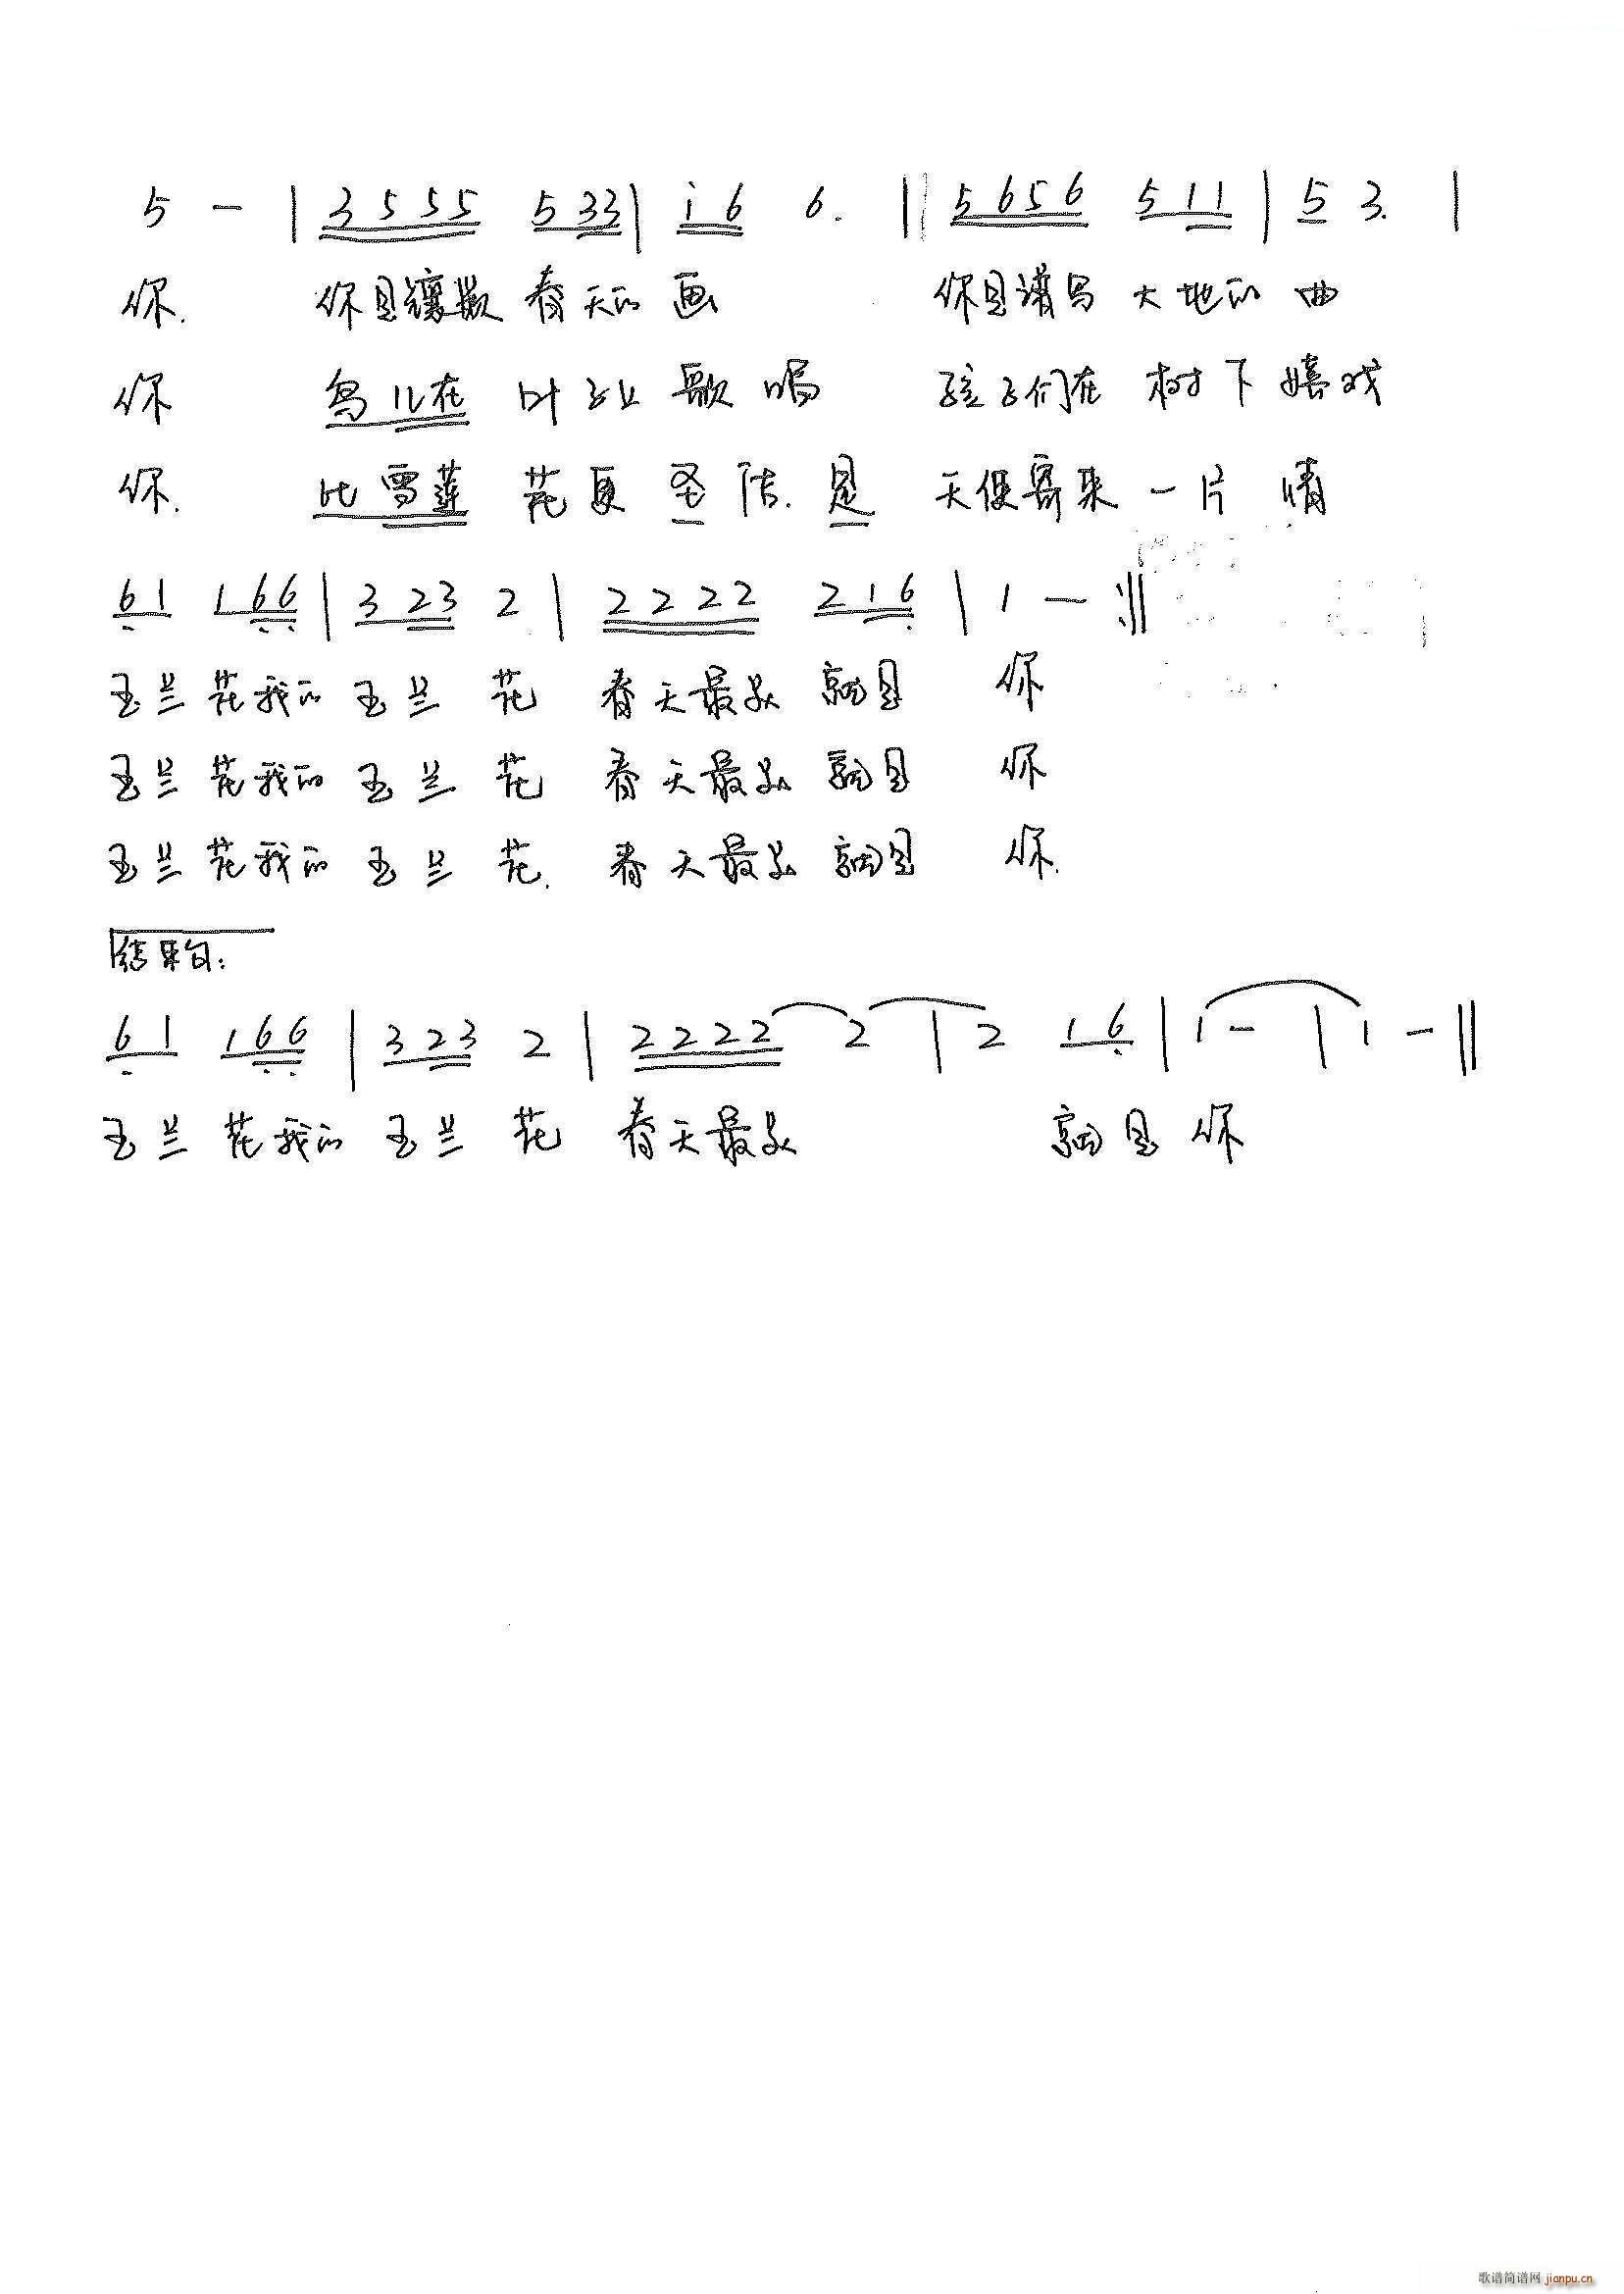 5 - | 3555 533 | i6 6. || 5656 511 | 5 3. |
你. 你是 春天的画 你是谱写大地的曲
你 鸟儿在叶子上歌唱 孩子们在树下嬉戏
你. 比雪莲花更圣洁.是 天使寄来一片情
61 166 | 323 2 | 2222 216 | 1 - :||
玉兰花我的玉兰花 春天最美就是 你
玉兰花我的玉兰花 春天最美就是 你
玉兰花我的玉兰花. 春天最美就是 你.
结束句:
61 166 | 323 2 | 2222 2 | 2 16 | 1 - | 1 - ||
玉兰花我的玉兰花 春天最美 就是你
歌谱简谱网 jianpu.cn